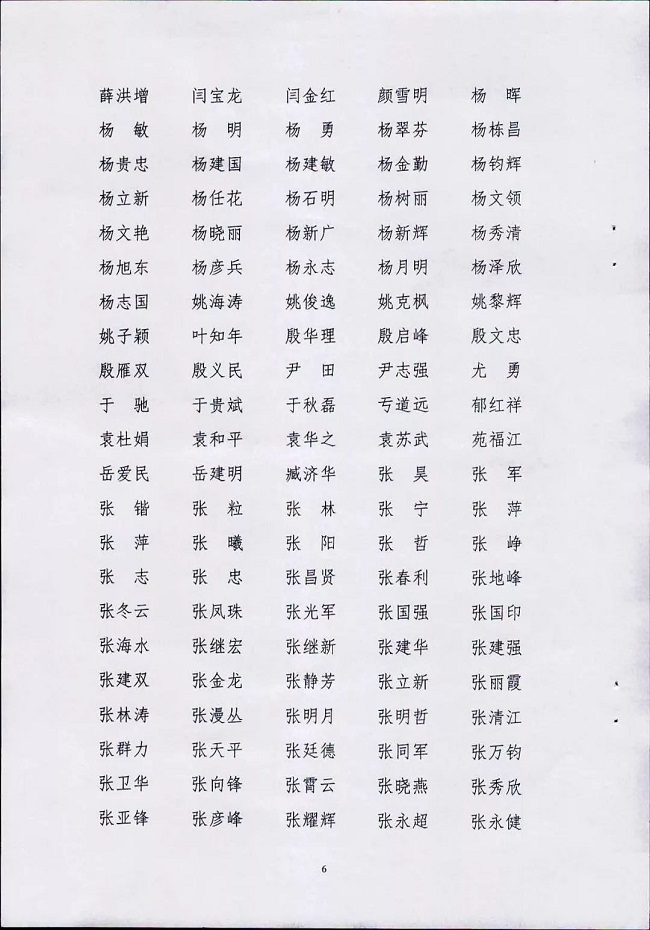 薛洪增 闫宝龙 闫金红 颜雪明 杨　晖
杨　敏 杨　明 杨　勇 杨翠芬 杨栋昌
杨贵忠 杨建国 杨建敏 杨金勤 杨钧辉
杨立新 杨任花 杨石明 杨树丽 杨文领
杨文艳 杨晓丽 杨新广 杨新辉 杨秀清
杨旭东 杨彦兵 杨永志 杨月明 杨泽欣
杨志国 姚海涛 姚俊逸 姚克枫 姚黎辉
姚子颖 叶知年 殷华理 殷启峰 殷文忠
殷雁双 殷义民 尹　田 尹志强 尤　勇
于　驰 于贵斌 于秋磊 亐道远 郁红祥
袁杜娟 袁和平 袁华之 袁苏武 苑福江
岳爱民 岳建明 臧济华 张　昊 张　军
张　锴 张　粒 张　林 张　宁 张　萍
张　萍 张　曦 张　阳 张　哲 张　峥
张　志 张　忠 张昌贤 张春利 张地峰
张冬云 张凤珠 张光军 张国强 张国印
张海水 张继宏 张继新 张建华 张建强
张建双 张金龙 张静芳 张立新 张丽霞
张林涛 张漫丛 张明月 张明哲 张清江
张群力 张天平 张廷德 张同军 张万钧
张卫华 张向锋 张霄云 张晓燕 张秀欣
张亚锋 张彦峰 张耀辉 张永超 张永健
6